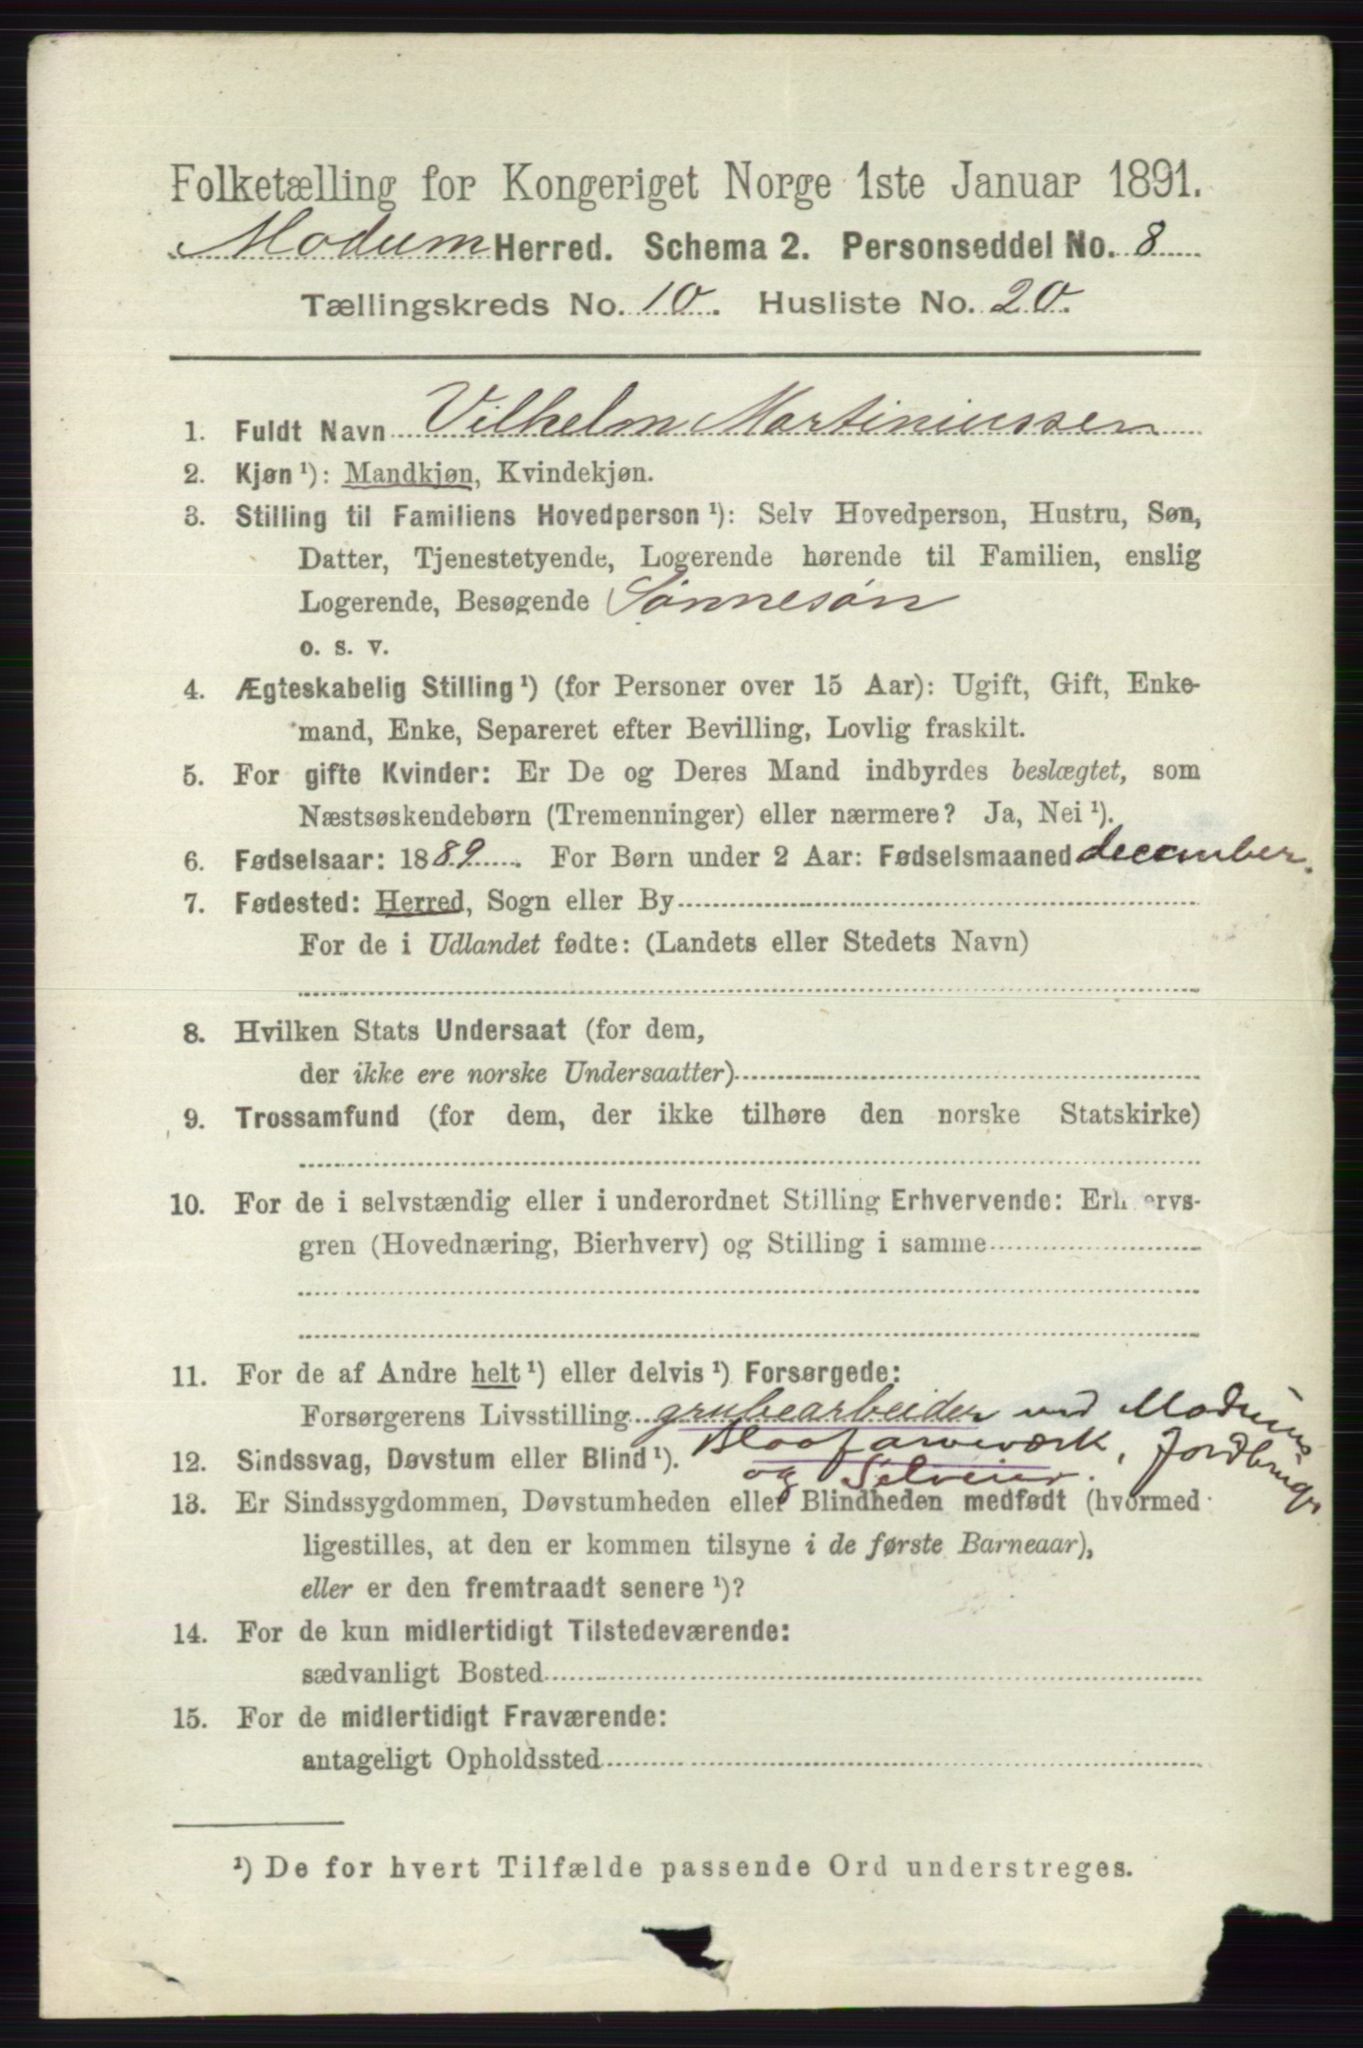 Folketælling for Kongeriget Norge 1ste Januar 1891.
Modum Herred. Schema 2. Personseddel No. 8
Tællingskreds No. 10. Husliste No. 20.
1. Fuldt Navn Vilhelm Martiniussen
2. Kjøn ¹): Mandkjøn, Kvindekjøn.
3. Stilling til Familiens Hovedperson ¹): Selv Hovedperson, Hustru, Søn,
Datter, Tjenestetyende, Logerende hørende til Familien, enslig
Logerende, Besøgende Sønnesøn
o. s. v.
4. Ægteskabelig Stilling ¹) (for Personer over 15 Aar): Ugift, Gift, Enke-
mand, Enke, Separeret efter Bevilling, Lovlig fraskilt.
5. For gifte Kvinder: Er De og Deres Mand indbyrdes beslægtet, som
Næstsøskendebørn (Tremenninger) eller nærmere? Ja, Nei ¹).
6. Fødselsaar: 1889. For Børn under 2 Aar: Fødselsmaaned december.
7. Fødested: Herred, Sogn eller By
For de i Udlandet fødte: (Landets eller Stedets Navn)
8. Hvilken Stats Undersaat (for dem,
der ikke ere norske Undersaatter)
9. Trossamfund (for dem, der ikke tilhøre den norske Statskirke)
10. For de i selvstændig eller i underordnet Stilling Erhvervende: Erhvervs-
gren (Hovednæring, Bierhverv) og Stilling i samme
11. For de af Andre helt ¹) eller delvis ¹) Forsørgede:
Forsørgerens Livsstilling grubearbeider ved Modums
12. Sindssvag, Døvstum eller Blind ¹). Blaafarveværk, Jordbruger
og Selveier.
13. Er Sindssygdommen, Døvstumheden eller Blindheden medfødt (hvormed
ligestilles, at den er kommen tilsyne i de første Barneaar),
eller er den fremtraadt senere ¹)?
14. For de kun midlertidigt Tilstedeværende:
sædvanligt Bosted
15. For de midlertidigt Fraværende:
antageligt Opholdssted
¹) De for hvert Tilfælde passende Ord understreges.